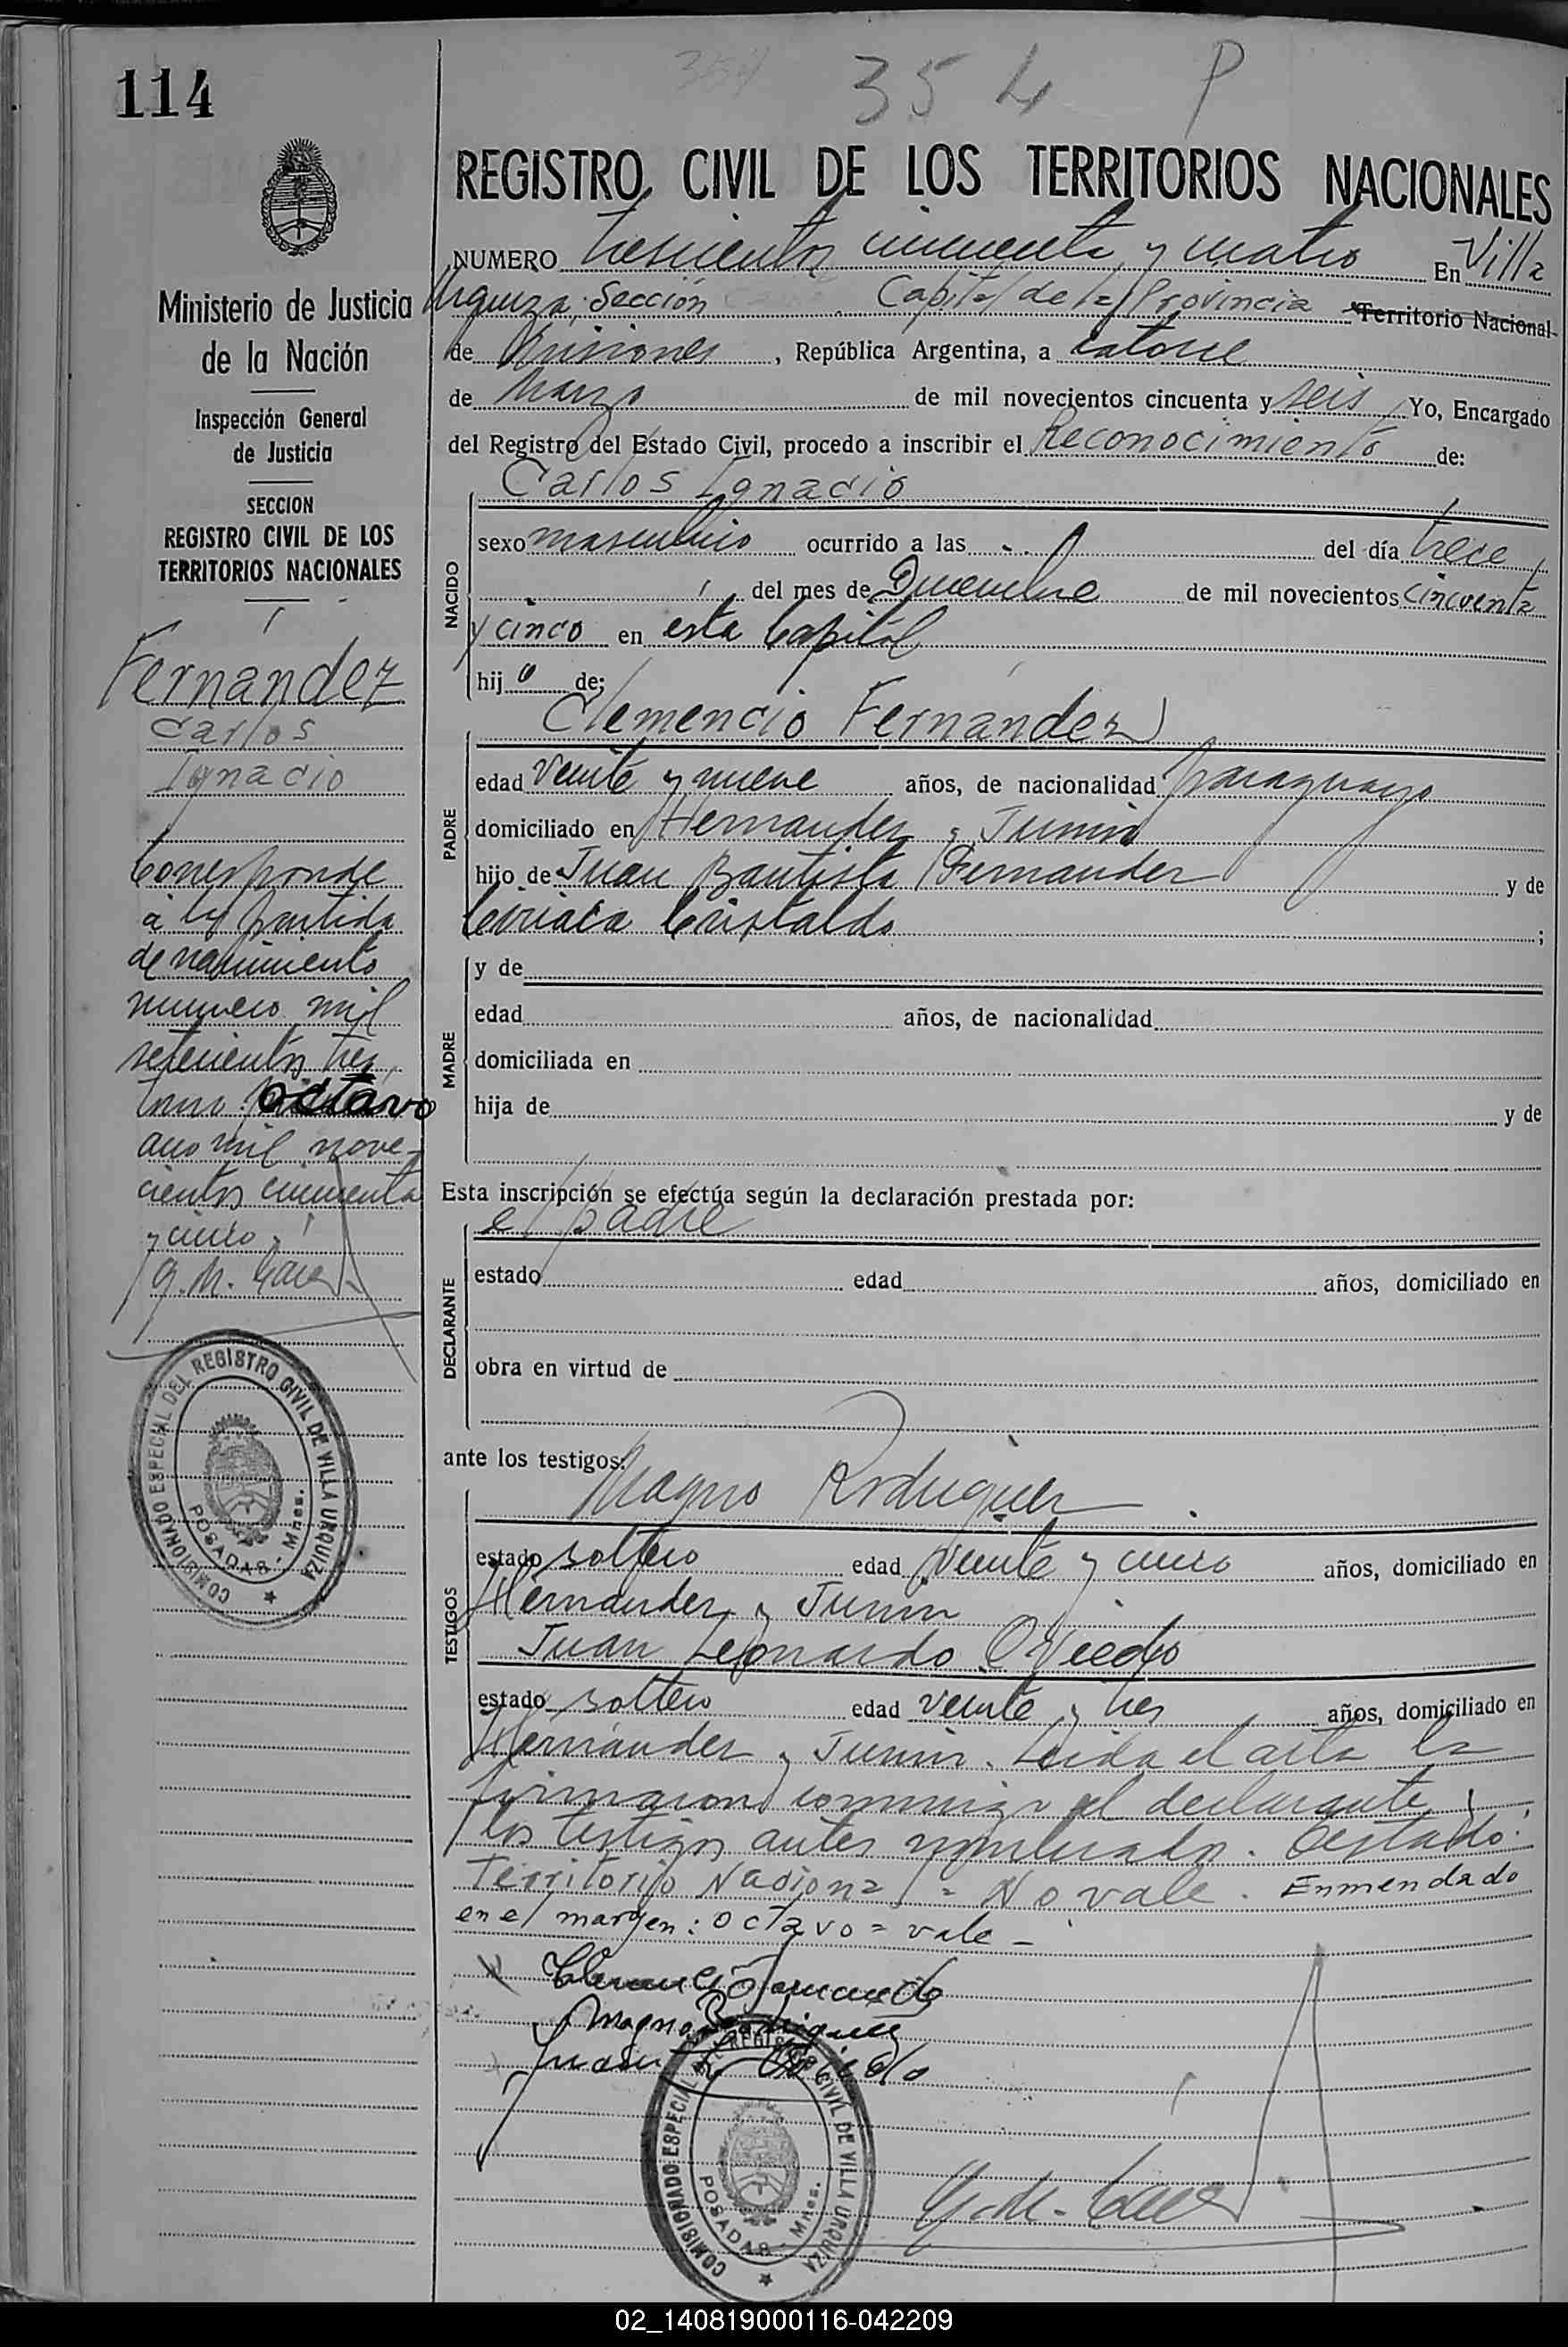 114
354 354 P
REGISTRO CIVIL DE LOS TERRITORIOS NACIONALES
NUMERO trescientos cincuenta y cuatro En Villa
Urquiza, Sección Capital de la Provincia Territorio Nacional
de Misiones, República Argentina, a catorce
de Marzo de mil novecientos cincuenta y seis Yo, Encargado
del Registro del Estado Civil, procedo a inscribir el Reconocimiento de:
Carlos Ignacio
NACIDO
sexo masculino ocurrido a las del día trece
del mes de Diciembre de mil novecientos cincuenta
y cinco en esta Capital
hijo de:
Clemencio Fernández
PADRE
edad veinte y nueve años, de nacionalidad paraguayo
domiciliado en Hernandez y Junin
hijo de Juan Bautista Fernandez y de
Ciriaca Cristaldo ;
MADRE
y de
edad años, de nacionalidad
domiciliada en
hija de y de
Esta inscripción se efectúa según la declaración prestada por:
el padre
DECLARANTE
estado edad años, domiciliado en
obra en virtud de
ante los testigos:
Magno Rodriguez
TESTIGOS
estado soltero edad veinte y cinco años, domiciliado en
Hernandez y Junin
Juan Leonardo Oviedo
estado soltero edad veinte y tres años, domiciliado en
Hernández y Junin. Leida el acta la
firmaron conmigo el declarante y
los testigos antes nombrados. Testado:
Territorio Nacional = No vale. Enmendado
en el margen: octavo = vale -
Clemencio Fernandez
Magno Rodriguez
Juan L. Oviedo
COMISIONADO ESPECIAL DEL REGISTRO CIVIL DE VILLA URQUIZA
POSADAS - Mnes.
Ministerio de Justicia
de la Nación
Inspección General
de Justicia
SECCION
REGISTRO CIVIL DE LOS
TERRITORIOS NACIONALES
Fernández
Carlos
Ignacio
Corresponde
a la partida
de nacimiento
numero mil
setecientos tres,
tomo octavo
año mil nove-
cientos cincuenta
y cinco
COMISIONADO ESPECIAL DEL REGISTRO CIVIL DE VILLA URQUIZA
POSADAS - Mnes.
02_140819000116-042209